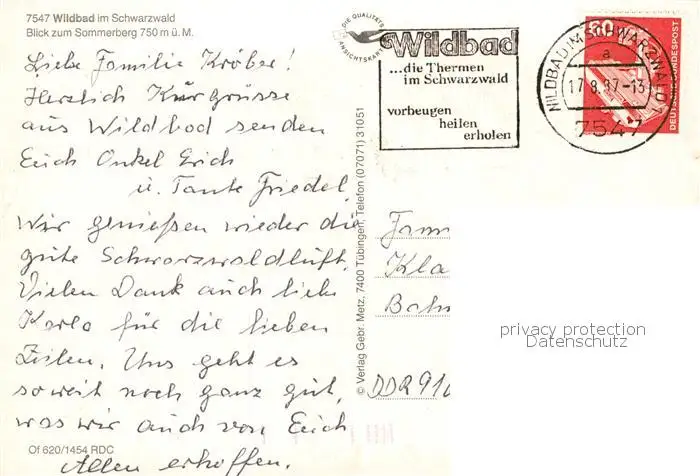 7547 Wildbad im Schwarzwald
Blick zum Sommerberg 750 m ü. M.
Liebe Familie Kröber!
Herzlich Kurgrüsse
aus Wildbad senden
Euch Onkel Erich
u. Tante Friedel.
Wir genießen wieder die
gute Schwarzwaldluft.
Vielen Dank auch liebe
Karla für die lieben
Zeilen. Uns geht es
soweit noch ganz gut,
was wir auch von Euch
Allen erhoffen.
Of 620/1454 RDC
© Verlag Gebr. Metz, 7400 Tübingen, Telefon (07071) 31051
DIE QUALITÄTS
ANSICHTSKARTE
Wildbad
...die Thermen
im Schwarzwald
vorbeugen
heilen
erholen
WILDBAD IM SCHWARZWALD
a
17.8.87-13
7547
60
DEUTSCHE BUNDESPOST
Fam
Kla
Bahn
DDR 910
privacy protection
Datenschutz